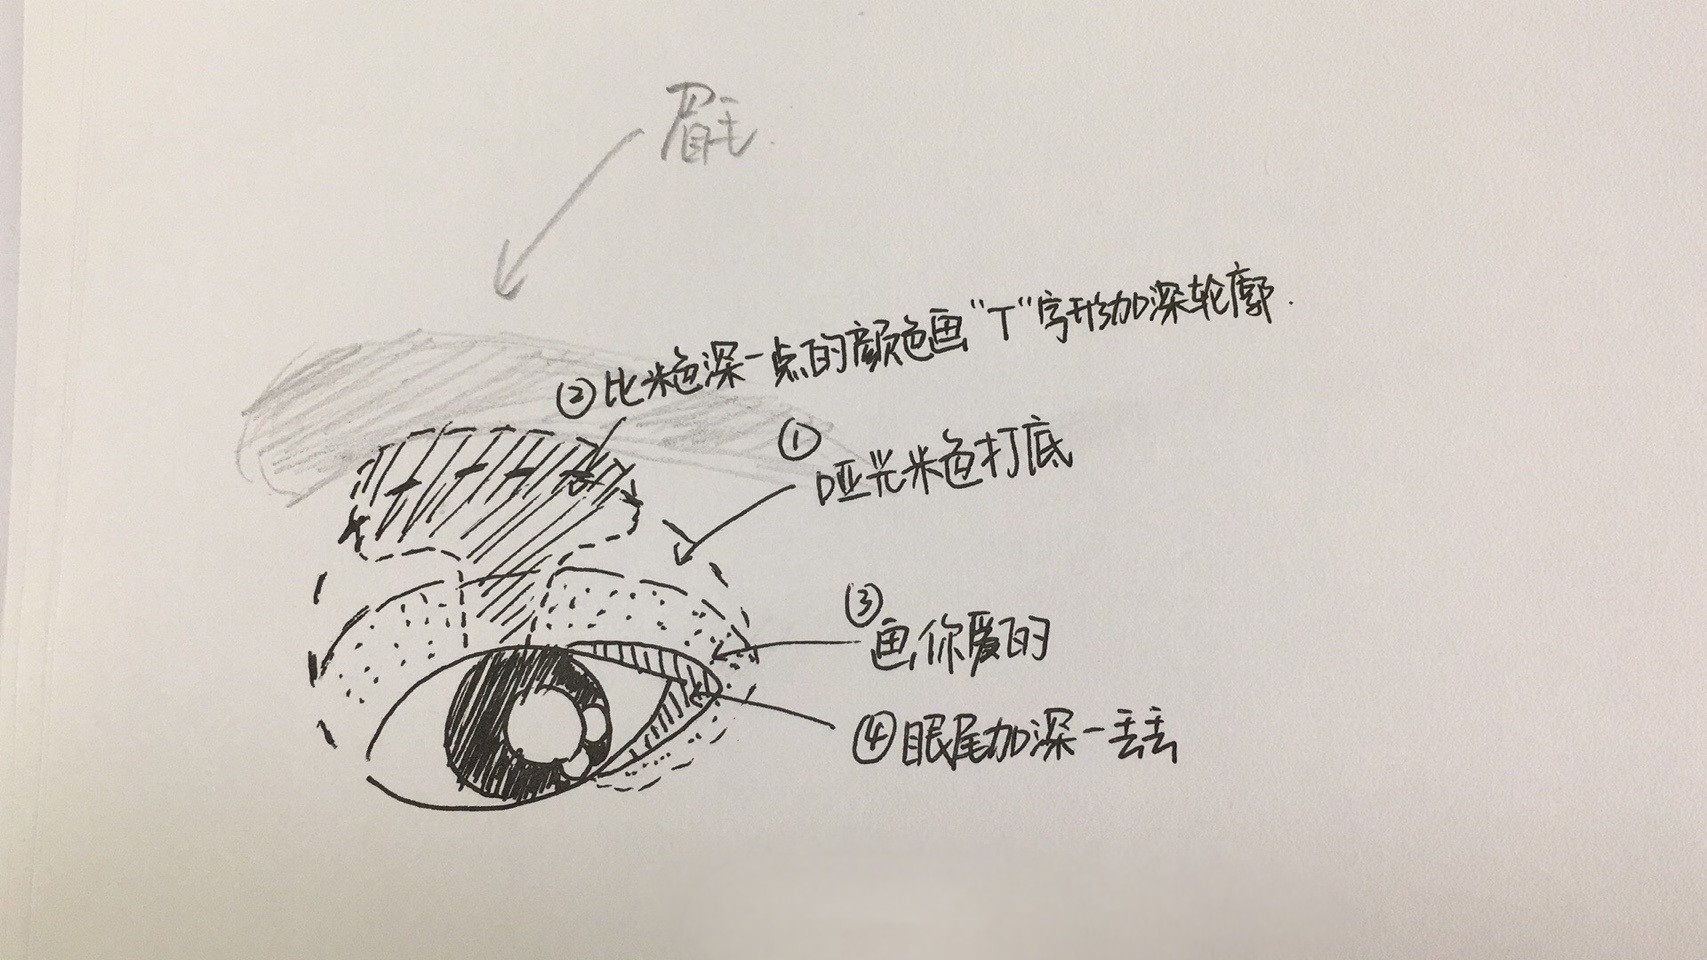 眉毛
②比米色深一点的颜色画“T”字形加深轮廓.
①
哑光米色打底
③
画你爱的
④眼尾加深一丢丢